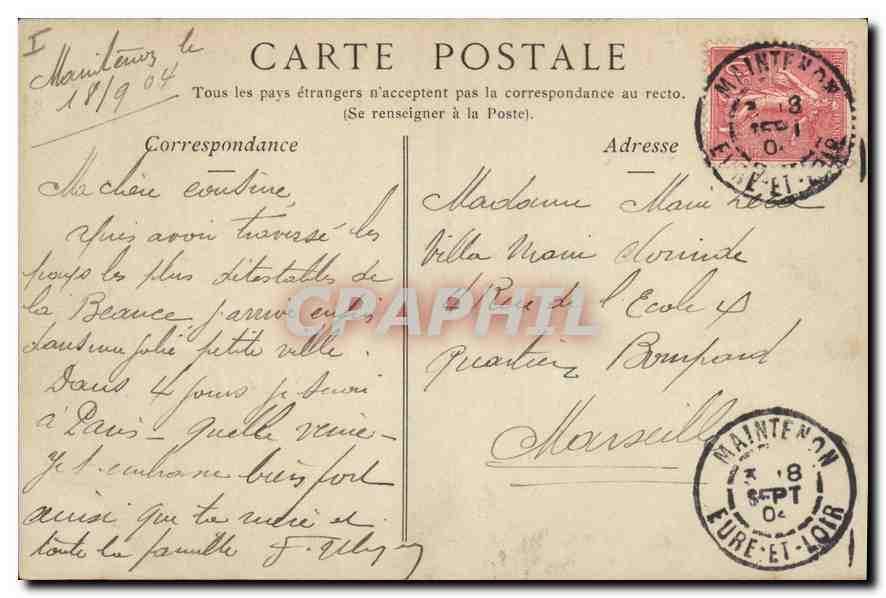 I
Maintenon le
18/9 04
CARTE POSTALE
Tous les pays étrangers n'acceptent pas la correspondance au recto.
(Se renseigner à la Poste).
Correspondance
Adresse
Ma chère cousine,
avoir traversé les
pays les plus détestables de
la Beauce, j'arrive enfin
dans une jolie petite ville.
Dans 4 jours je serai
à Paris - quelle veine -
Je t'embrasse bien fort
ainsi que ta mère et
toute la famille
Madame
Villa
4 Rue de l'Ecole 4
Quartier Bompard
Marseille
MAINTENON
18
SEPT
04
EURE-ET-LOIR
MAINTENON
18
SEPT
04
EURE-ET-LOIR
CPAPHIL